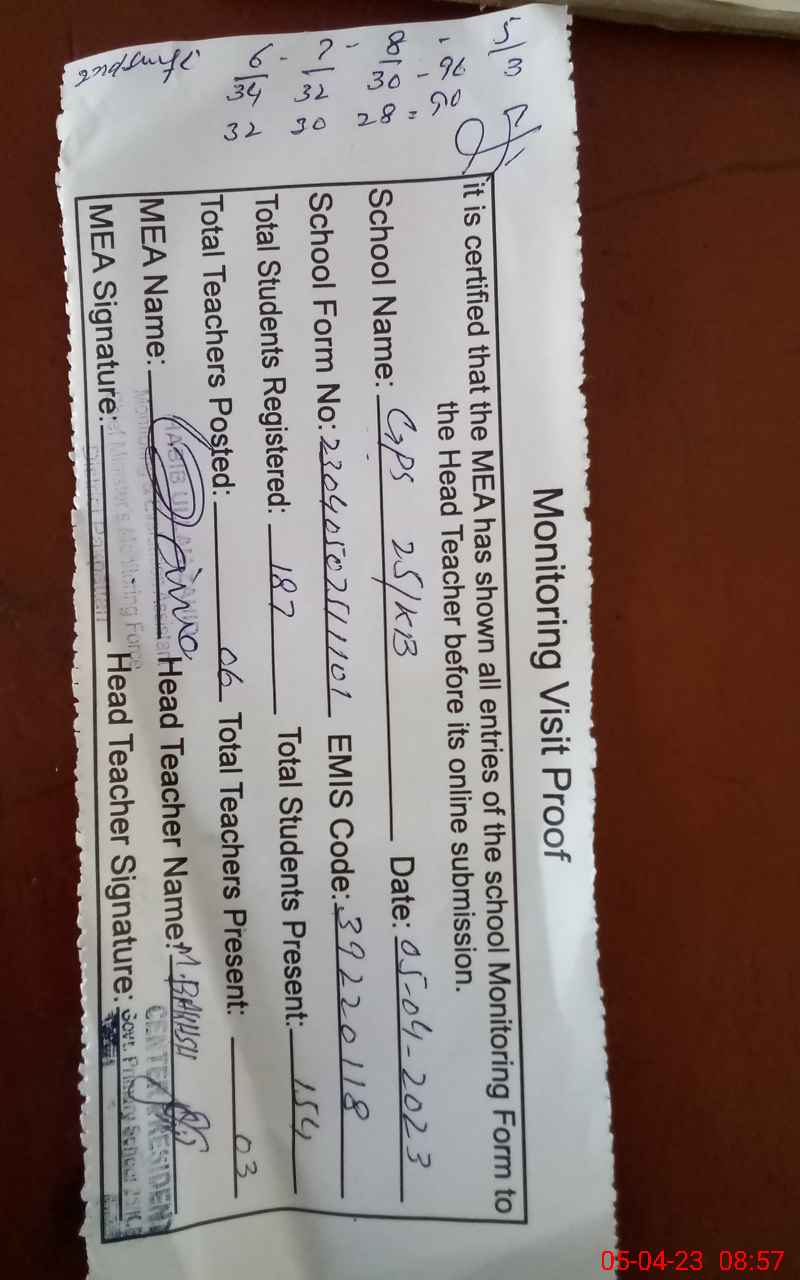 Monitoring Visit Proof
it is certified that the MEA has shown all entries of the school Monitoring Form to
the Head Teacher before its online submission.
School Name: GPS 25/KB Date: 05-04-2023
School Form No: 23040507511101 EMIS Code: 39220118
Total Students Registered: 187 Total Students Present: 154
Total Teachers Posted: 06 Total Teachers Present: 03
MEA Name: Head Teacher Name: M. BAKHSH
MEA Signature: Head Teacher Signature:
Chief Minister's Monitoring Force
Govt. Primary School 25/K.B
5/3
- 96
- 90
8/30
28 =
7/32
30
6/34
32
05-04-23 08:57